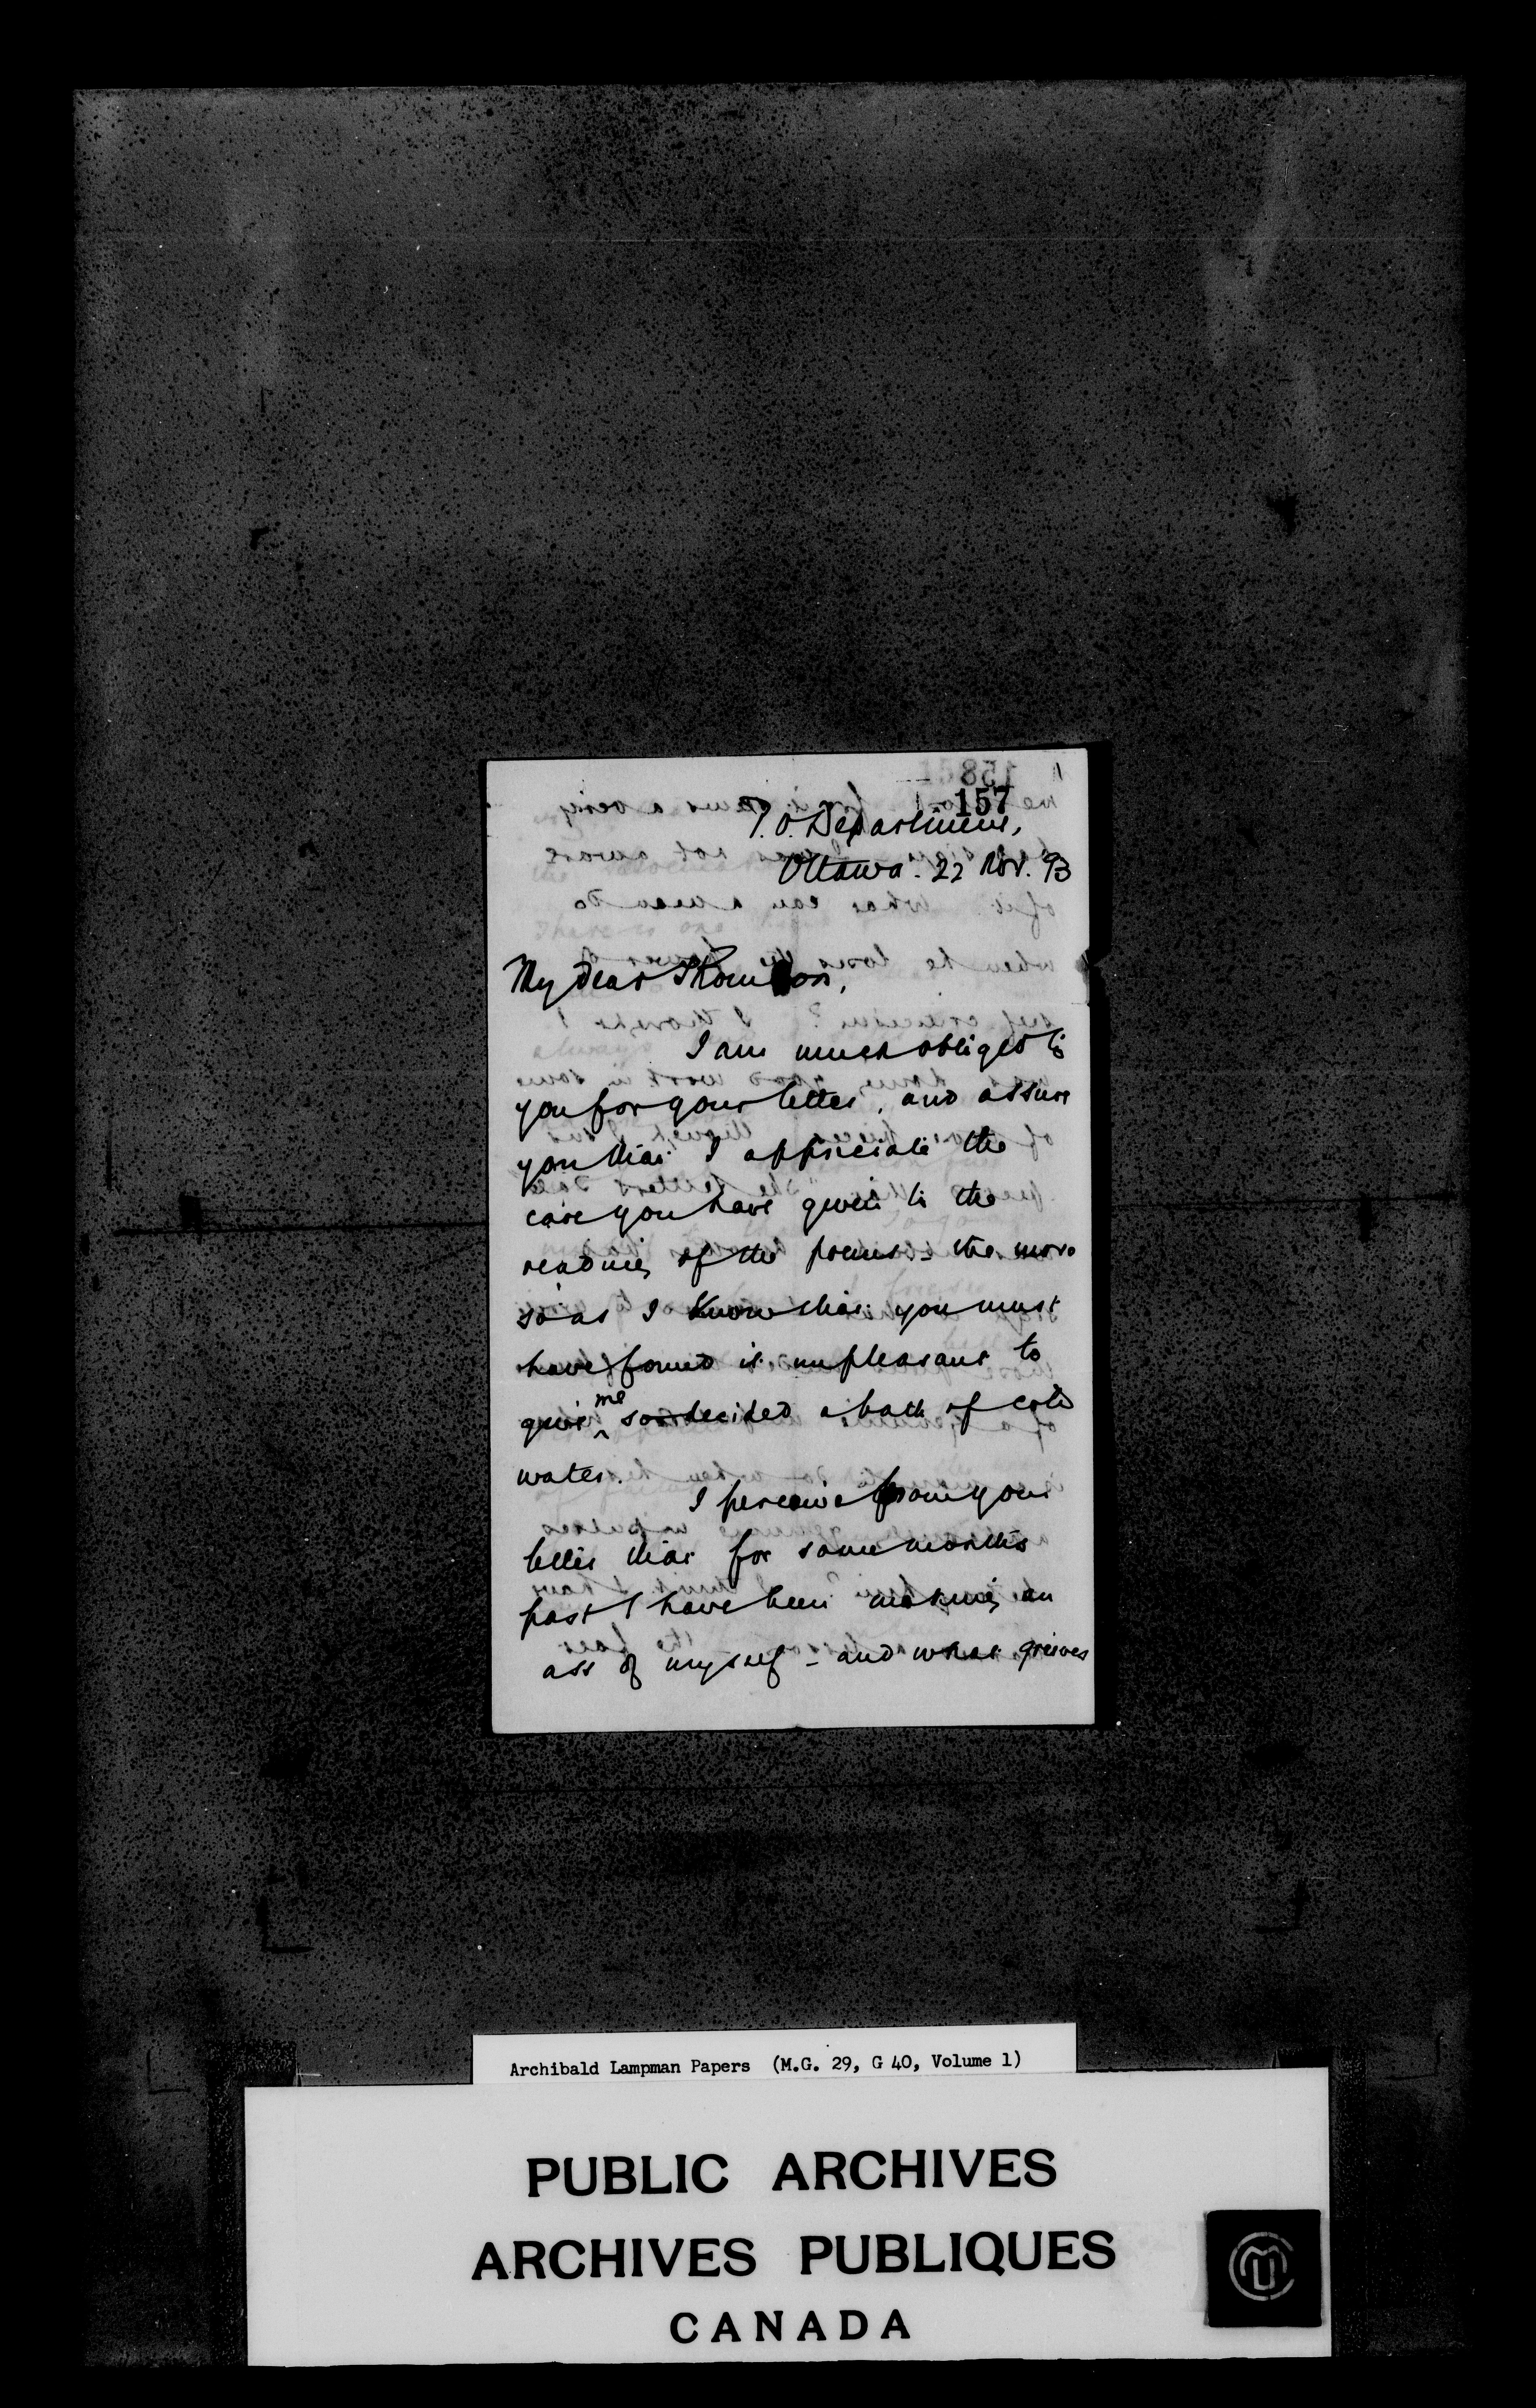 157
P.O. Department,
Ottawa. 22 Nov. 93
My dear Thomson,
I am much obliged to
you for your letter, and assure
you that I appreciate the
care you have given to the
reading of the poems - the more
so as I know that you must
have found it unpleasant to
give me so decided a bath of cold
water.
I perceive from your
letter that for some months
past I have been making an
ass of myself - and what grieves
Archibald Lampman Papers (M.G. 29, G 40, Volume 1)
PUBLIC ARCHIVES
ARCHIVES PUBLIQUES
CANADA